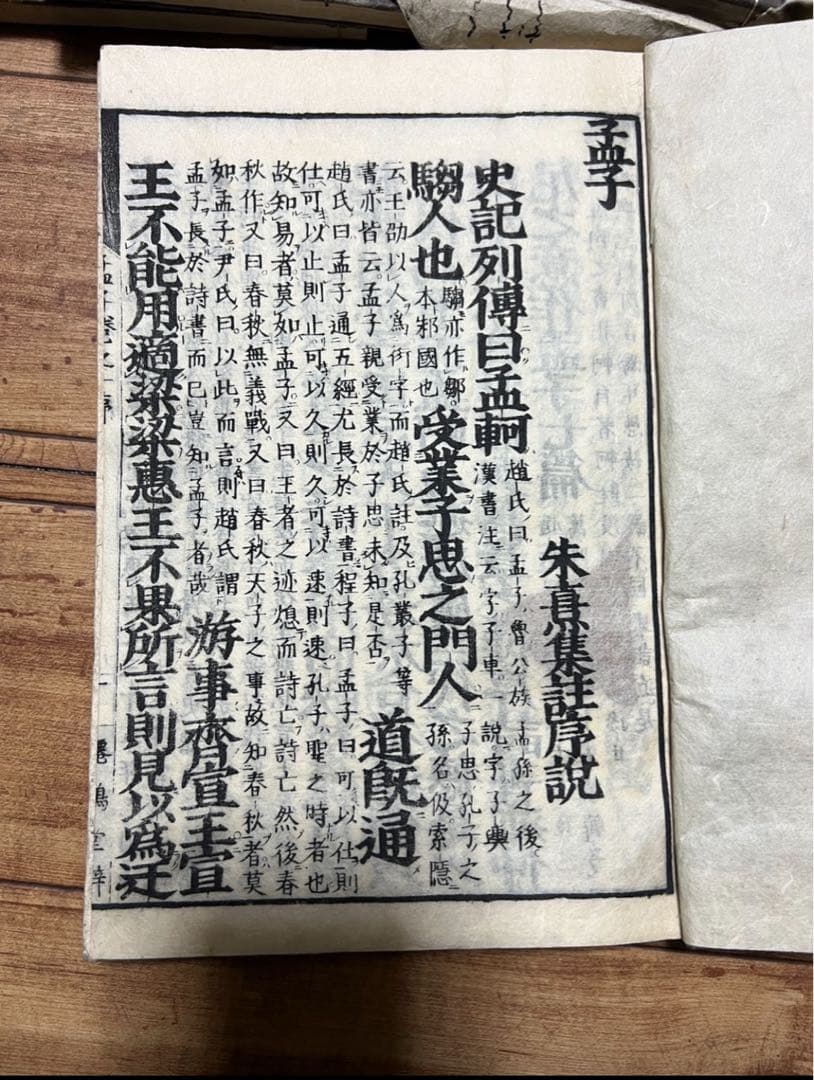 孟子
朱熹集註序說
史記列傳曰孟軻
趙氏曰孟子魯公族孟孫之後
漢書注云字子車一說字子輿
騶人也
騶亦作鄒
本邾國也
受業子思之門人
子思孔子之
孫名伋索隱
云王劭以人爲衍字而趙氏註及孔叢子等
書亦皆云孟子親受業於子思未知是否
道既通
趙氏曰孟子通五經尤長於詩書程子曰孟子曰可以仕則
仕可以止則止可以久則久可以速則速孔子聖之時者也
故知易者莫如孟子又曰王者之迹熄而詩亡詩亡然後春
秋作又曰春秋無義戰又曰春秋天子之事故知春秋者莫
如孟子尹氏曰以此而言則趙氏謂
孟子長於詩書而已豈知孟子者哉
游事齊宣王宣
王不能用適梁梁惠王不果所言則見以爲迂
孟子卷之一 序
一
鳴堂梓